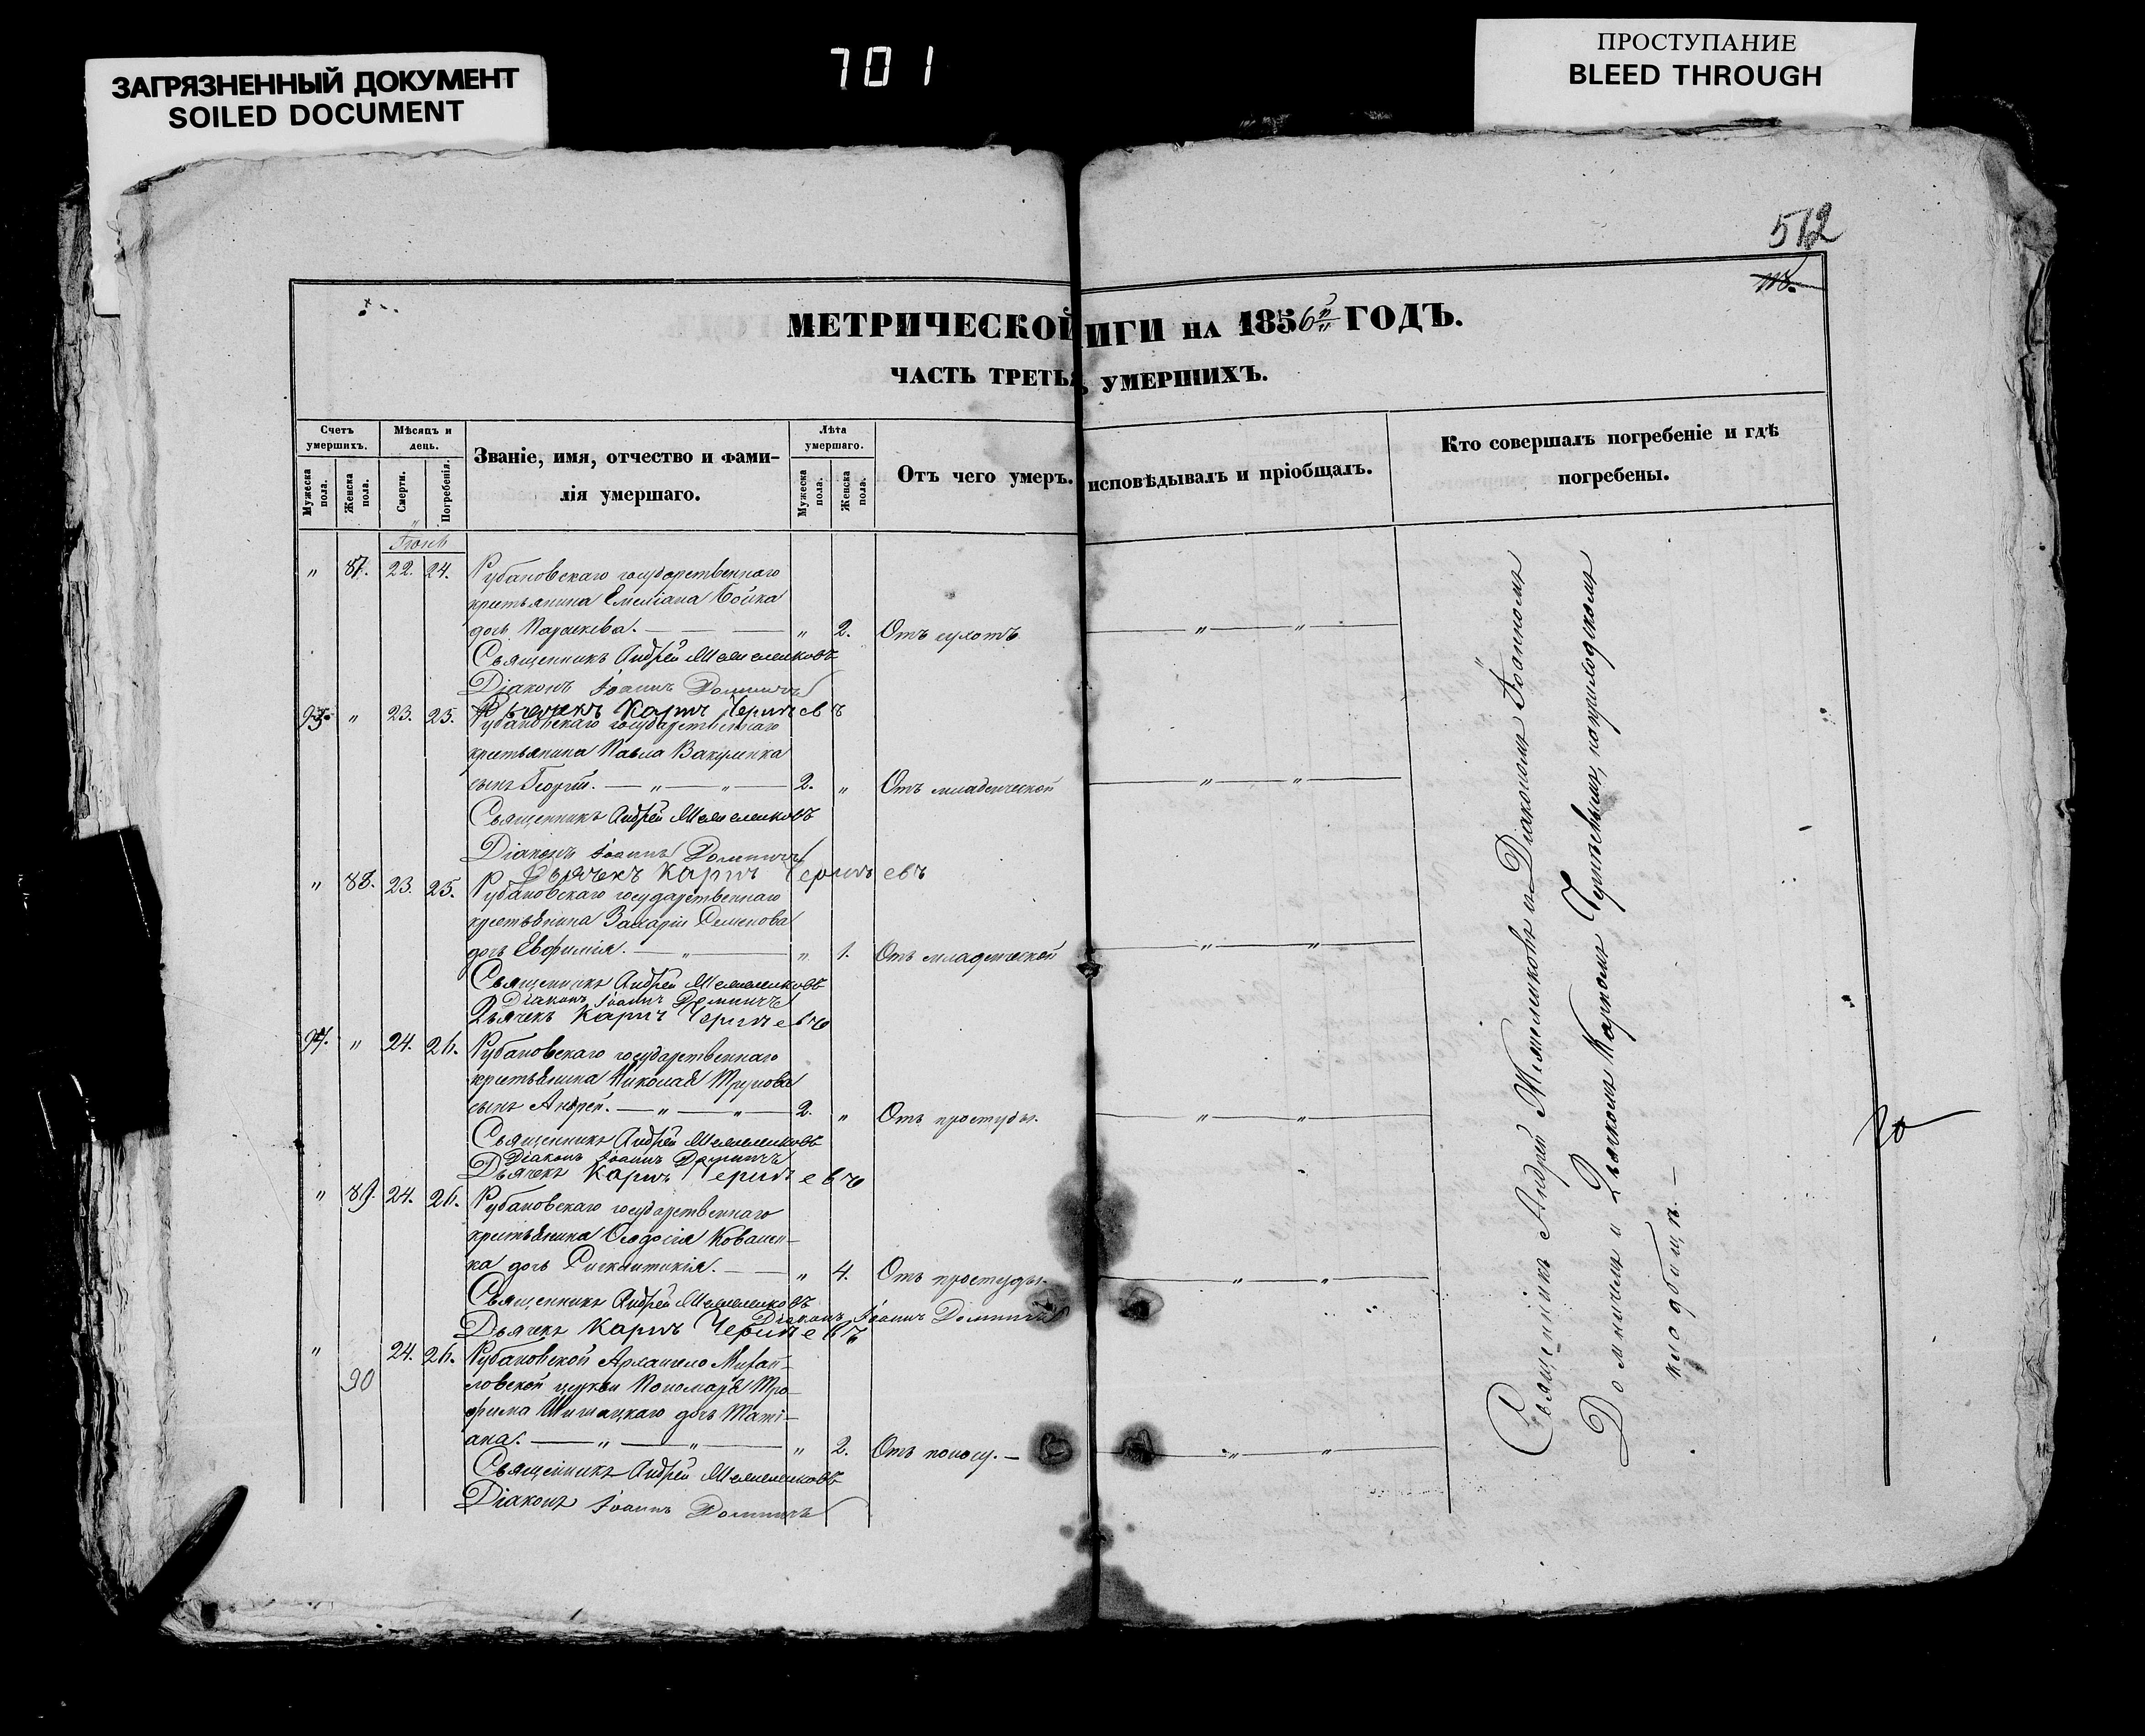 ЗАГРЯЗНЕННЫЙ ДОКУМЕНТ
SOILED DOCUMENT
701
ПРОСТУПАНИЕ
BLEED THROUGH
512
МЕТРИЧЕСКОЙ ИГИ НА 1856й ГОДЪ.
ЧАСТЬ ТРЕТЬЯ, УМЕРШИХЪ.
Счетъ умершихъ.
Мужеска пола.
Женска пола.
Мѣсяцъ и день.
Смерти.
Погребенія.
Званіе, имя, отчество и фами-
лія умершаго.
Лѣта умершаго.
Мужеска пола.
Женска пола.
Отъ чего умеръ.
исповѣдывалъ и пріобщалъ.
Кто совершалъ погребеніе и гдѣ
погребены.
" 87. 22. 24. Рубановскаго государственнаго
крестьянина Емеліана Бойка
дочь Параскева. — " 2. Отъ сухотъ — " — " —
Священникъ Андрей
Діаконъ Іоаннъ Доминичъ
Дьячекъ Карпъ
93. " 23. 25. Рубановскаго государственнаго
крестьянина Павла Вакуленка
сынъ Георгій. — " — " — 2. " Отъ младенческой — " — " —
Священникъ Андрей
Діаконъ Іоаннъ Доминичъ
Дьячекъ Карпъ
" 88. 23. 25. Рубановскаго государственнаго
крестьянина Захаріи Семенова
дочь Евфимія. — " — " 1. Отъ младенческой — " — " —
Священникъ Андрей
Діаконъ Іоаннъ Доминичъ
Дьячекъ Карпъ
94. " 24. 26. Рубановскаго государственнаго
крестьянина Николая
сынъ Андрей. — " — " — 2. " Отъ простуды. — " — " —
Священникъ Андрей
Діаконъ Іоаннъ Доминичъ
Дьячекъ Карпъ
" 89. 24. 26. Рубановскаго государственнаго
крестьянина Ѳеодосія Ковален-
ка дочь — " 4. Отъ простуды. — " — " —
Священникъ Андрей
Діаконъ Іоаннъ Доминичъ
Дьячекъ Карпъ
" 90 24. 26. Рубановской Архангело Михай-
ловской церкви Пономаря Тро-
фима Шишацкаго дочь Таті-
ана. — " — " — " 2. Отъ поносу. — " — " —
Священникъ Андрей
Діаконъ Іоаннъ Доминичъ
Священникъ Андрей и Діакономъ Іоанномъ
Доминичемъ и Дьячкомъ Карпомъ на приходскомъ
кладбищѣ. —